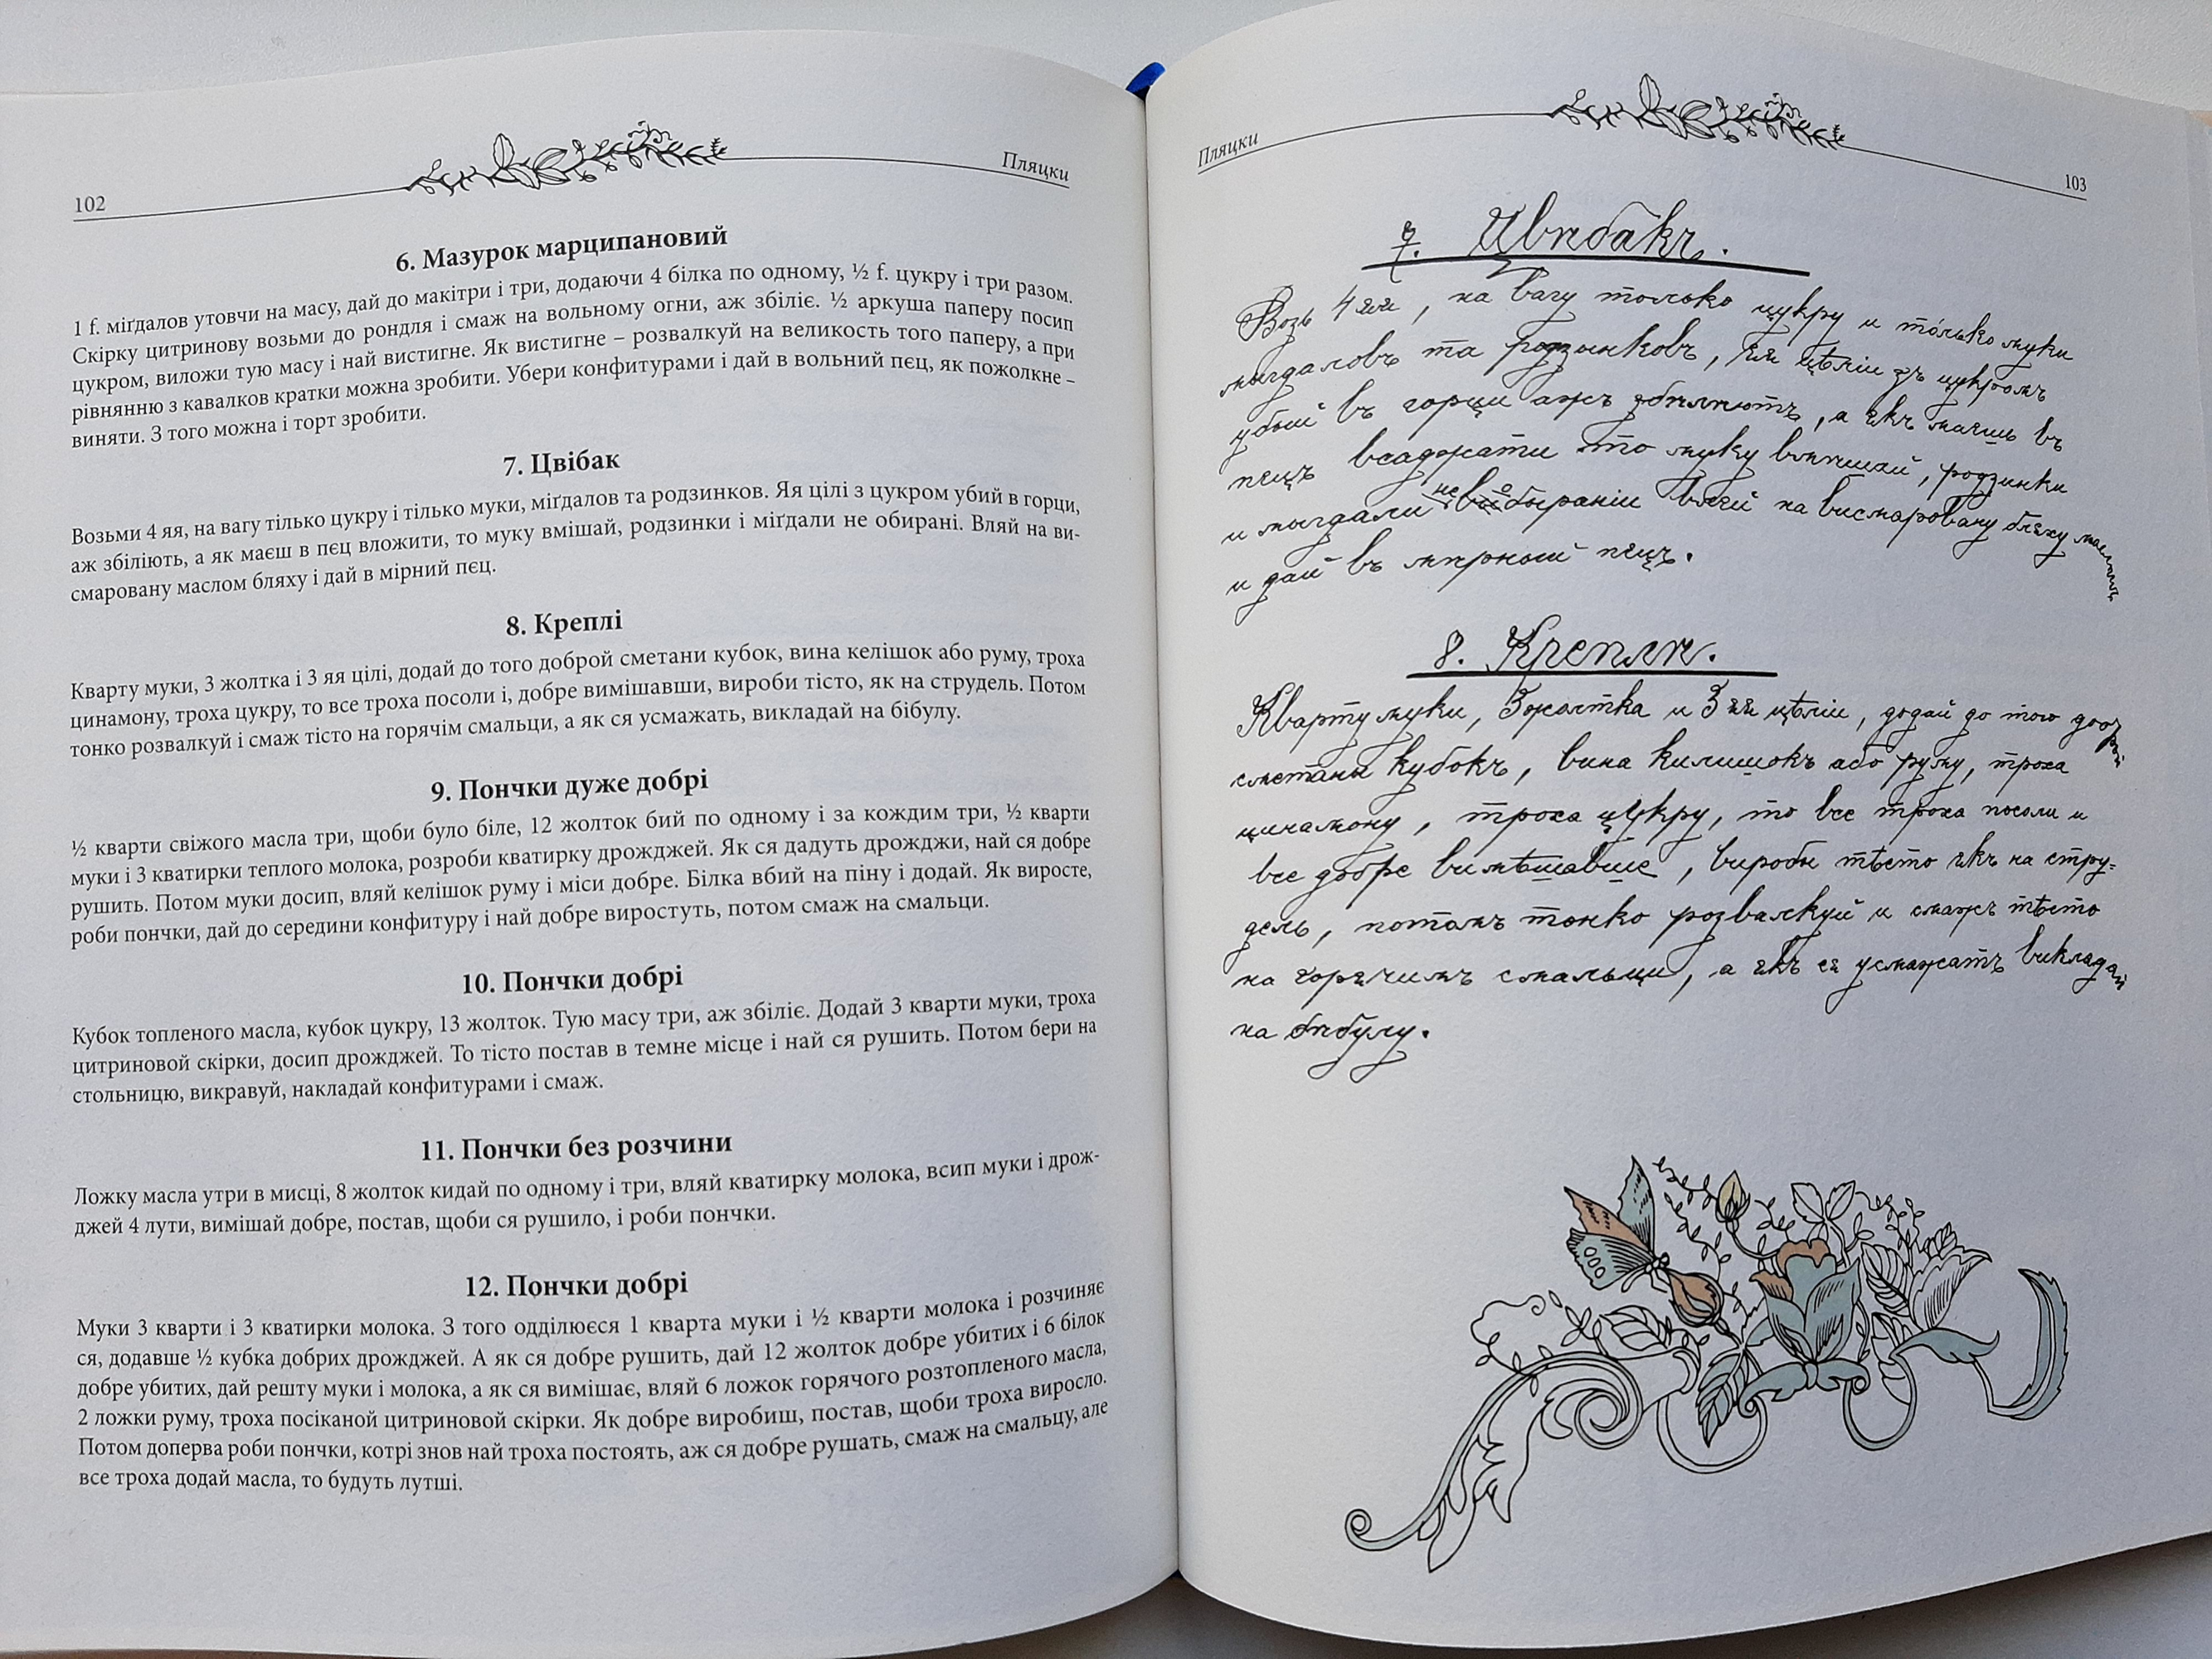 102
Пляцки
6. Мазурок марципановий
1 f. міґдалов утовчи на масу, дай до макітри і три, додаючи 4 білка по одному, ½ f. цукру і три разом.
Скірку цитринову возьми до рондля і смаж на вольному огни, аж збіліє. ½ аркуша паперу посип
цукром, виложи тую масу і най вистигне. Як вистигне – розвалкуй на великость того паперу, а при
рівнянню з кавалков кратки можна зробити. Убери конфитурами і дай в вольний пєц, як пожолкне –
виняти. З того можна і торт зробити.
7. Цвібак
Возьми 4 яя, на вагу тілько цукру і тілько муки, міґдалов та родзинков. Яя цілі з цукром убий в горци,
аж збіліють, а як маєш в пєц вложити, то муку вмішай, родзинки і міґдали не обирані. Вляй на ви-
смаровану маслом бляху і дай в мірний пєц.
8. Креплі
Кварту муки, 3 жолтка і 3 яя цілі, додай до того доброй сметани кубок, вина келішок або руму, троха
цинамону, троха цукру, то все троха посоли і, добре вимішавши, вироби тісто, як на струдель. Потом
тонко розвалкуй і смаж тісто на горячім смальци, а як ся усмажать, викладай на бібулу.
9. Пончки дуже добрі
½ кварти свіжого масла три, щоби було біле, 12 жолток бий по одному і за кождим три, ½ кварти
муки і 3 кватирки теплого молока, розроби кватирку дрожджей. Як ся дадуть дрожджи, най ся добре
рушить. Потом муки досип, вляй келішок руму і міси добре. Білка вбий на піну і додай. Як виросте,
роби пончки, дай до середини конфитуру і най добре виростуть, потом смаж на смальци.
10. Пончки добрі
Кубок топленого масла, кубок цукру, 13 жолток. Тую масу три, аж збіліє. Додай 3 кварти муки, троха
цитриновой скірки, досип дрожджей. То тісто постав в темне місце і най ся рушить. Потом бери на
стольницю, викравуй, накладай конфитурами і смаж.
11. Пончки без розчини
Ложку масла утри в мисці, 8 жолток кидай по одному і три, вляй кватирку молока, всип муки і дрож-
джей 4 лути, вимішай добре, постав, щоби ся рушило, і роби пончки.
12. Пончки добрі
Муки 3 кварти і 3 кватирки молока. З того одділюєся 1 кварта муки і ½ кварти молока і розчиняє
ся, додавше ½ кубка добрих дрожджей. А як ся добре рушить, дай 12 жолток добре убитих і 6 білок
добре убитих, дай решту муки і молока, а як ся вимішає, вляй 6 ложок горячого розтопленого масла,
2 ложки руму, троха посіканой цитриновой скірки. Як добре виробиш, постав, щоби троха виросло.
Потом доперва роби пончки, котрі знов най троха постоять, аж ся добре рушать, смаж на смальцу, але
все троха додай масла, то будуть лутші.
Пляцки
103
7. Цвѣбакъ.
Возь 4 яя, на вагу только цукру и только муки
мыгдаловъ та родзынковъ, яя цѣліи зъ цукромъ
убый въ горци ажъ збѣлѣютъ, а якъ маешь въ
пецъ всаджати то муку вмѣшай, родзинки
и мыгдали не обыраніи влей на висмаровану бляху масломъ
и дай въ мѣрный пецъ.
8. Креплѣ.
Кварту муки, 3 жолтка и 3 яя цѣліи, додай до того доброй
сметаны кубокъ, вина килишокъ або руму, троха
цинамону, троха цукру, то все троха посоли и
все добре вимѣшавше, вироби тѣсто якъ на стру=
дель, потомъ тонко розвалкуй и смажъ тѣсто
на горячимъ смальци, а якъ ся усмажатъ викладай
на бѣбулу.